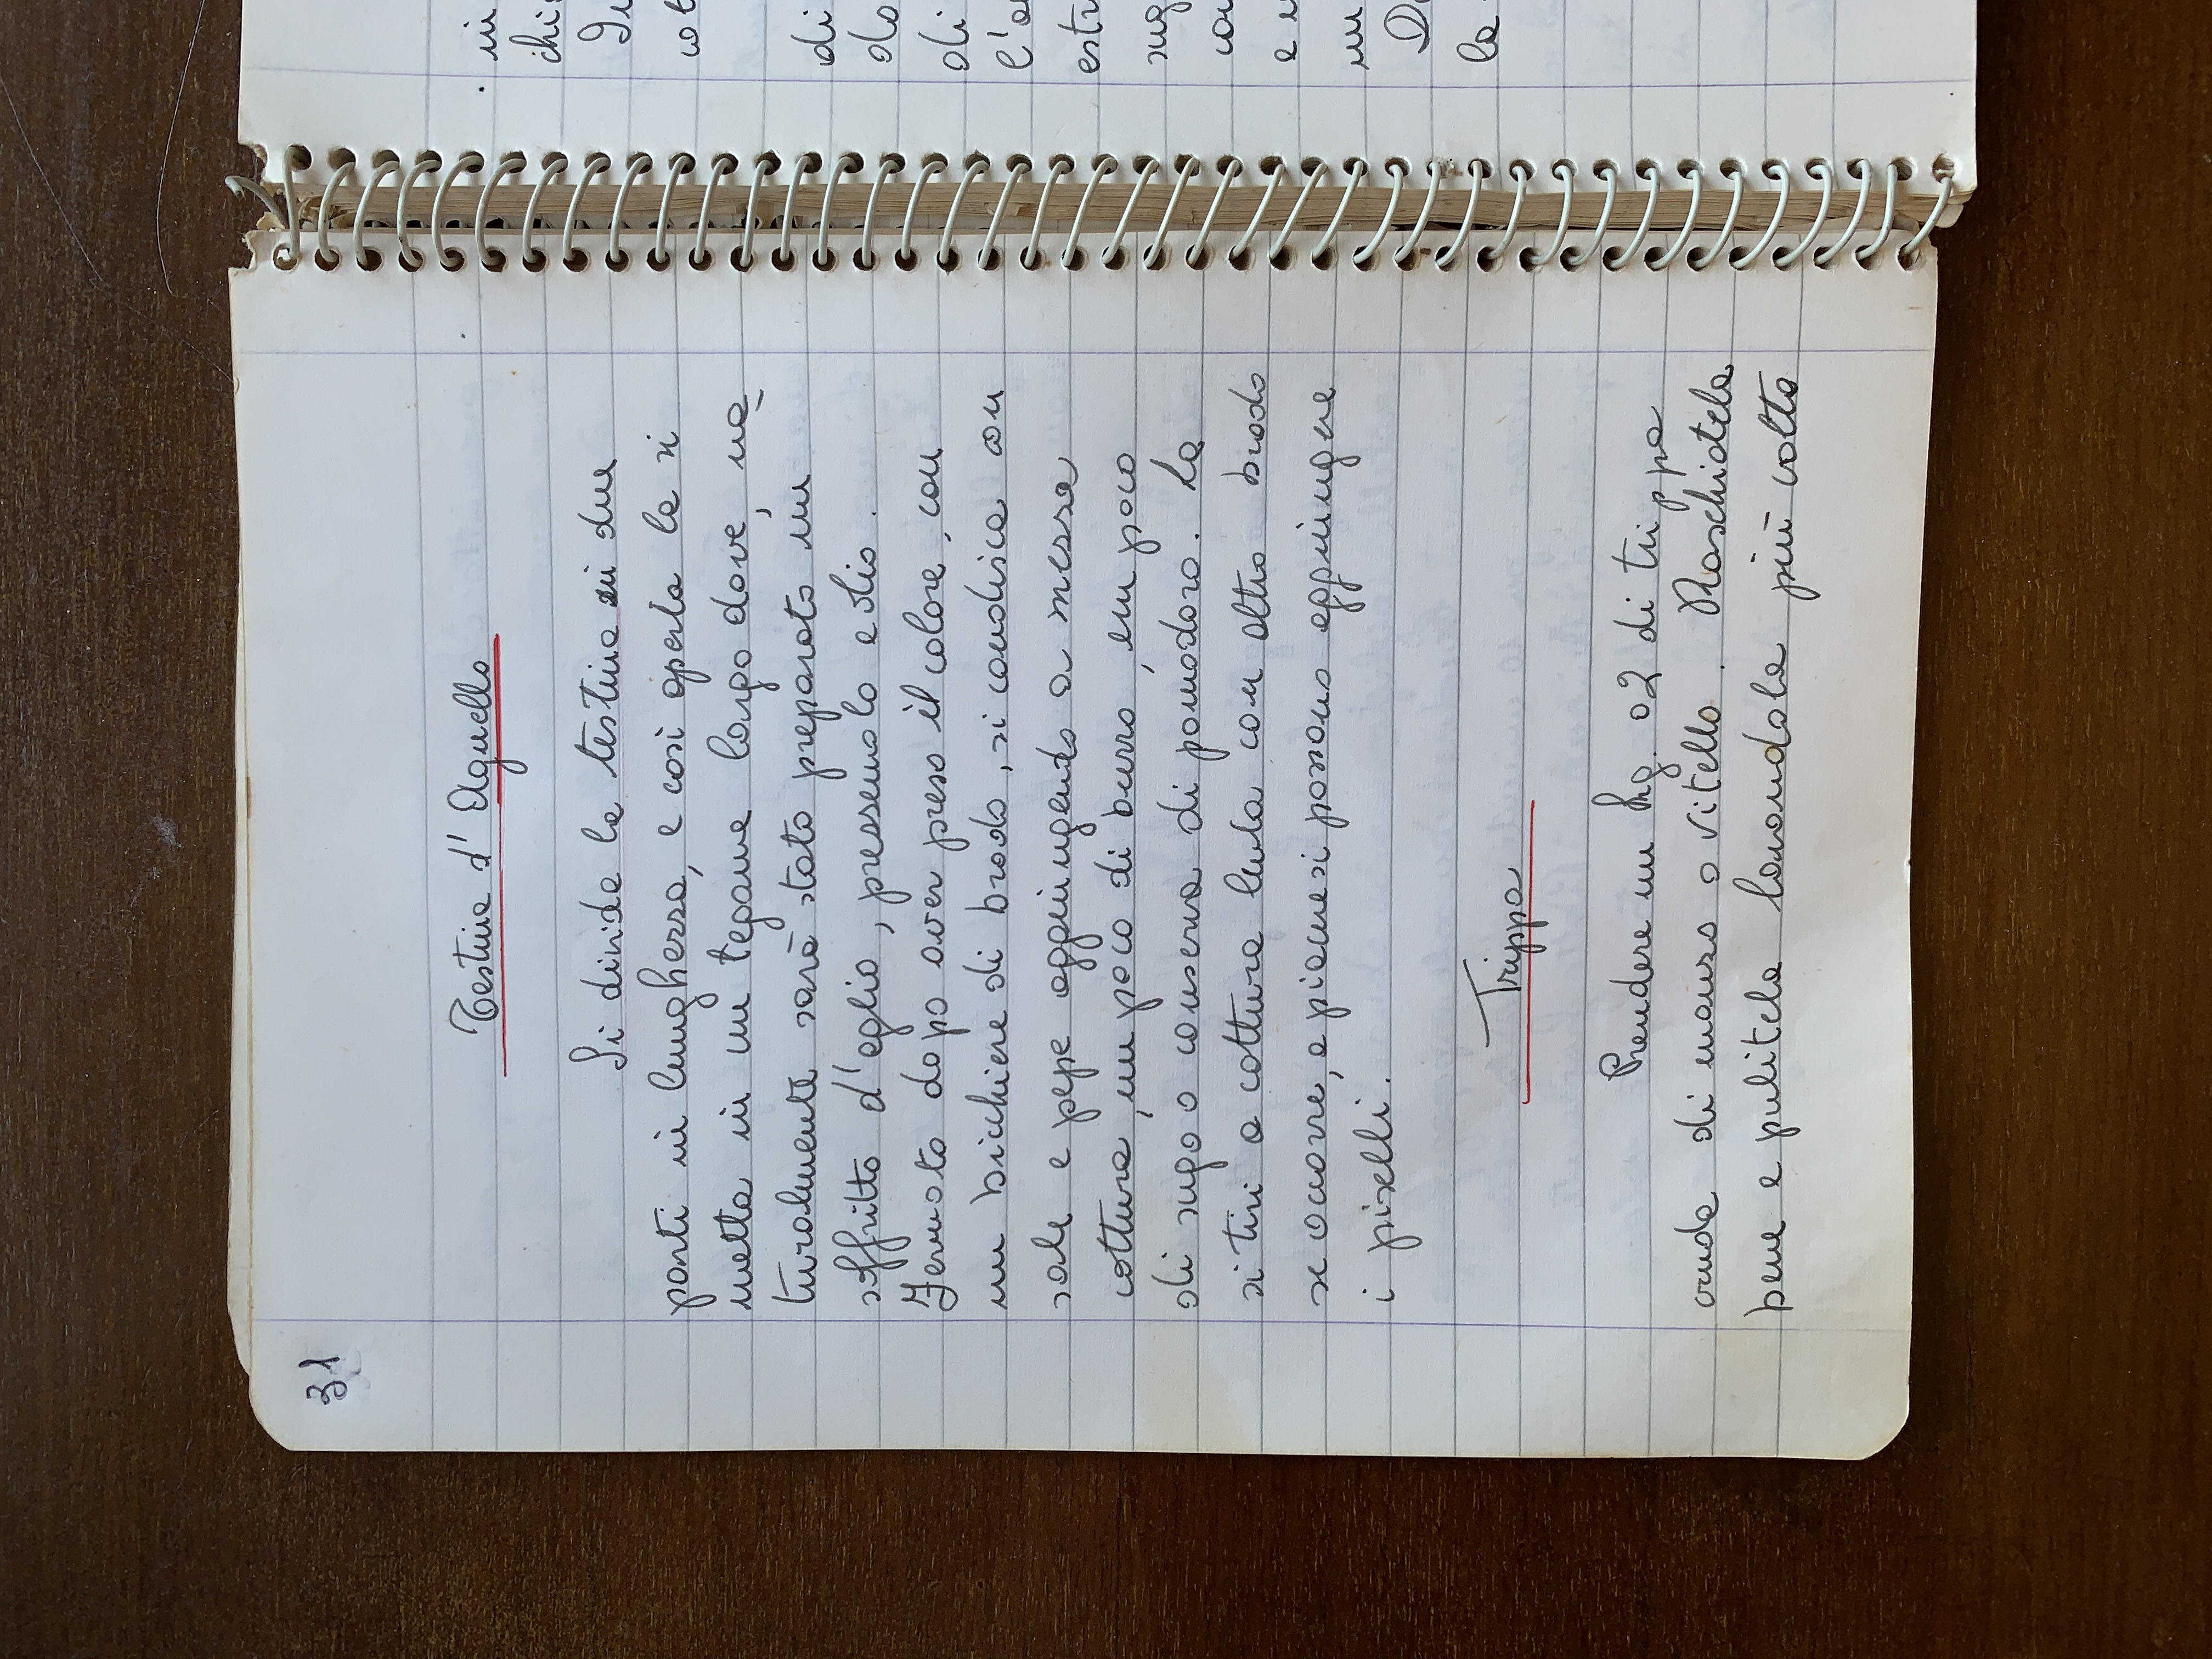 31
Testina d' Agnello
Si divida la testina in due
parti in lunghezza, e così aperta la si
metta in un tegame largo dove, na
turalmente sarà stato preparato un
soffritto d'aglio, pressemolo e olio.
Fermato dopo aver preso il colore, con
un bicchiere di brodo, si condisca con
sale e pepe aggiungendo a mezza
cottura, un poco di burro, un poco
di sugo o conserva di pomodoro. La
si tiri a cottura lenta con altro brodo
se occorre, a piacere si possono aggiungere
i piselli.
Trippa
Prendere un Kg. o 2 di trippa
cruda di manzo o vitello. Raschiatela
bene e pulitela lavandola più volte
in
chi
cot
di
do
di
l'a
estr
sug
con
e
un
la